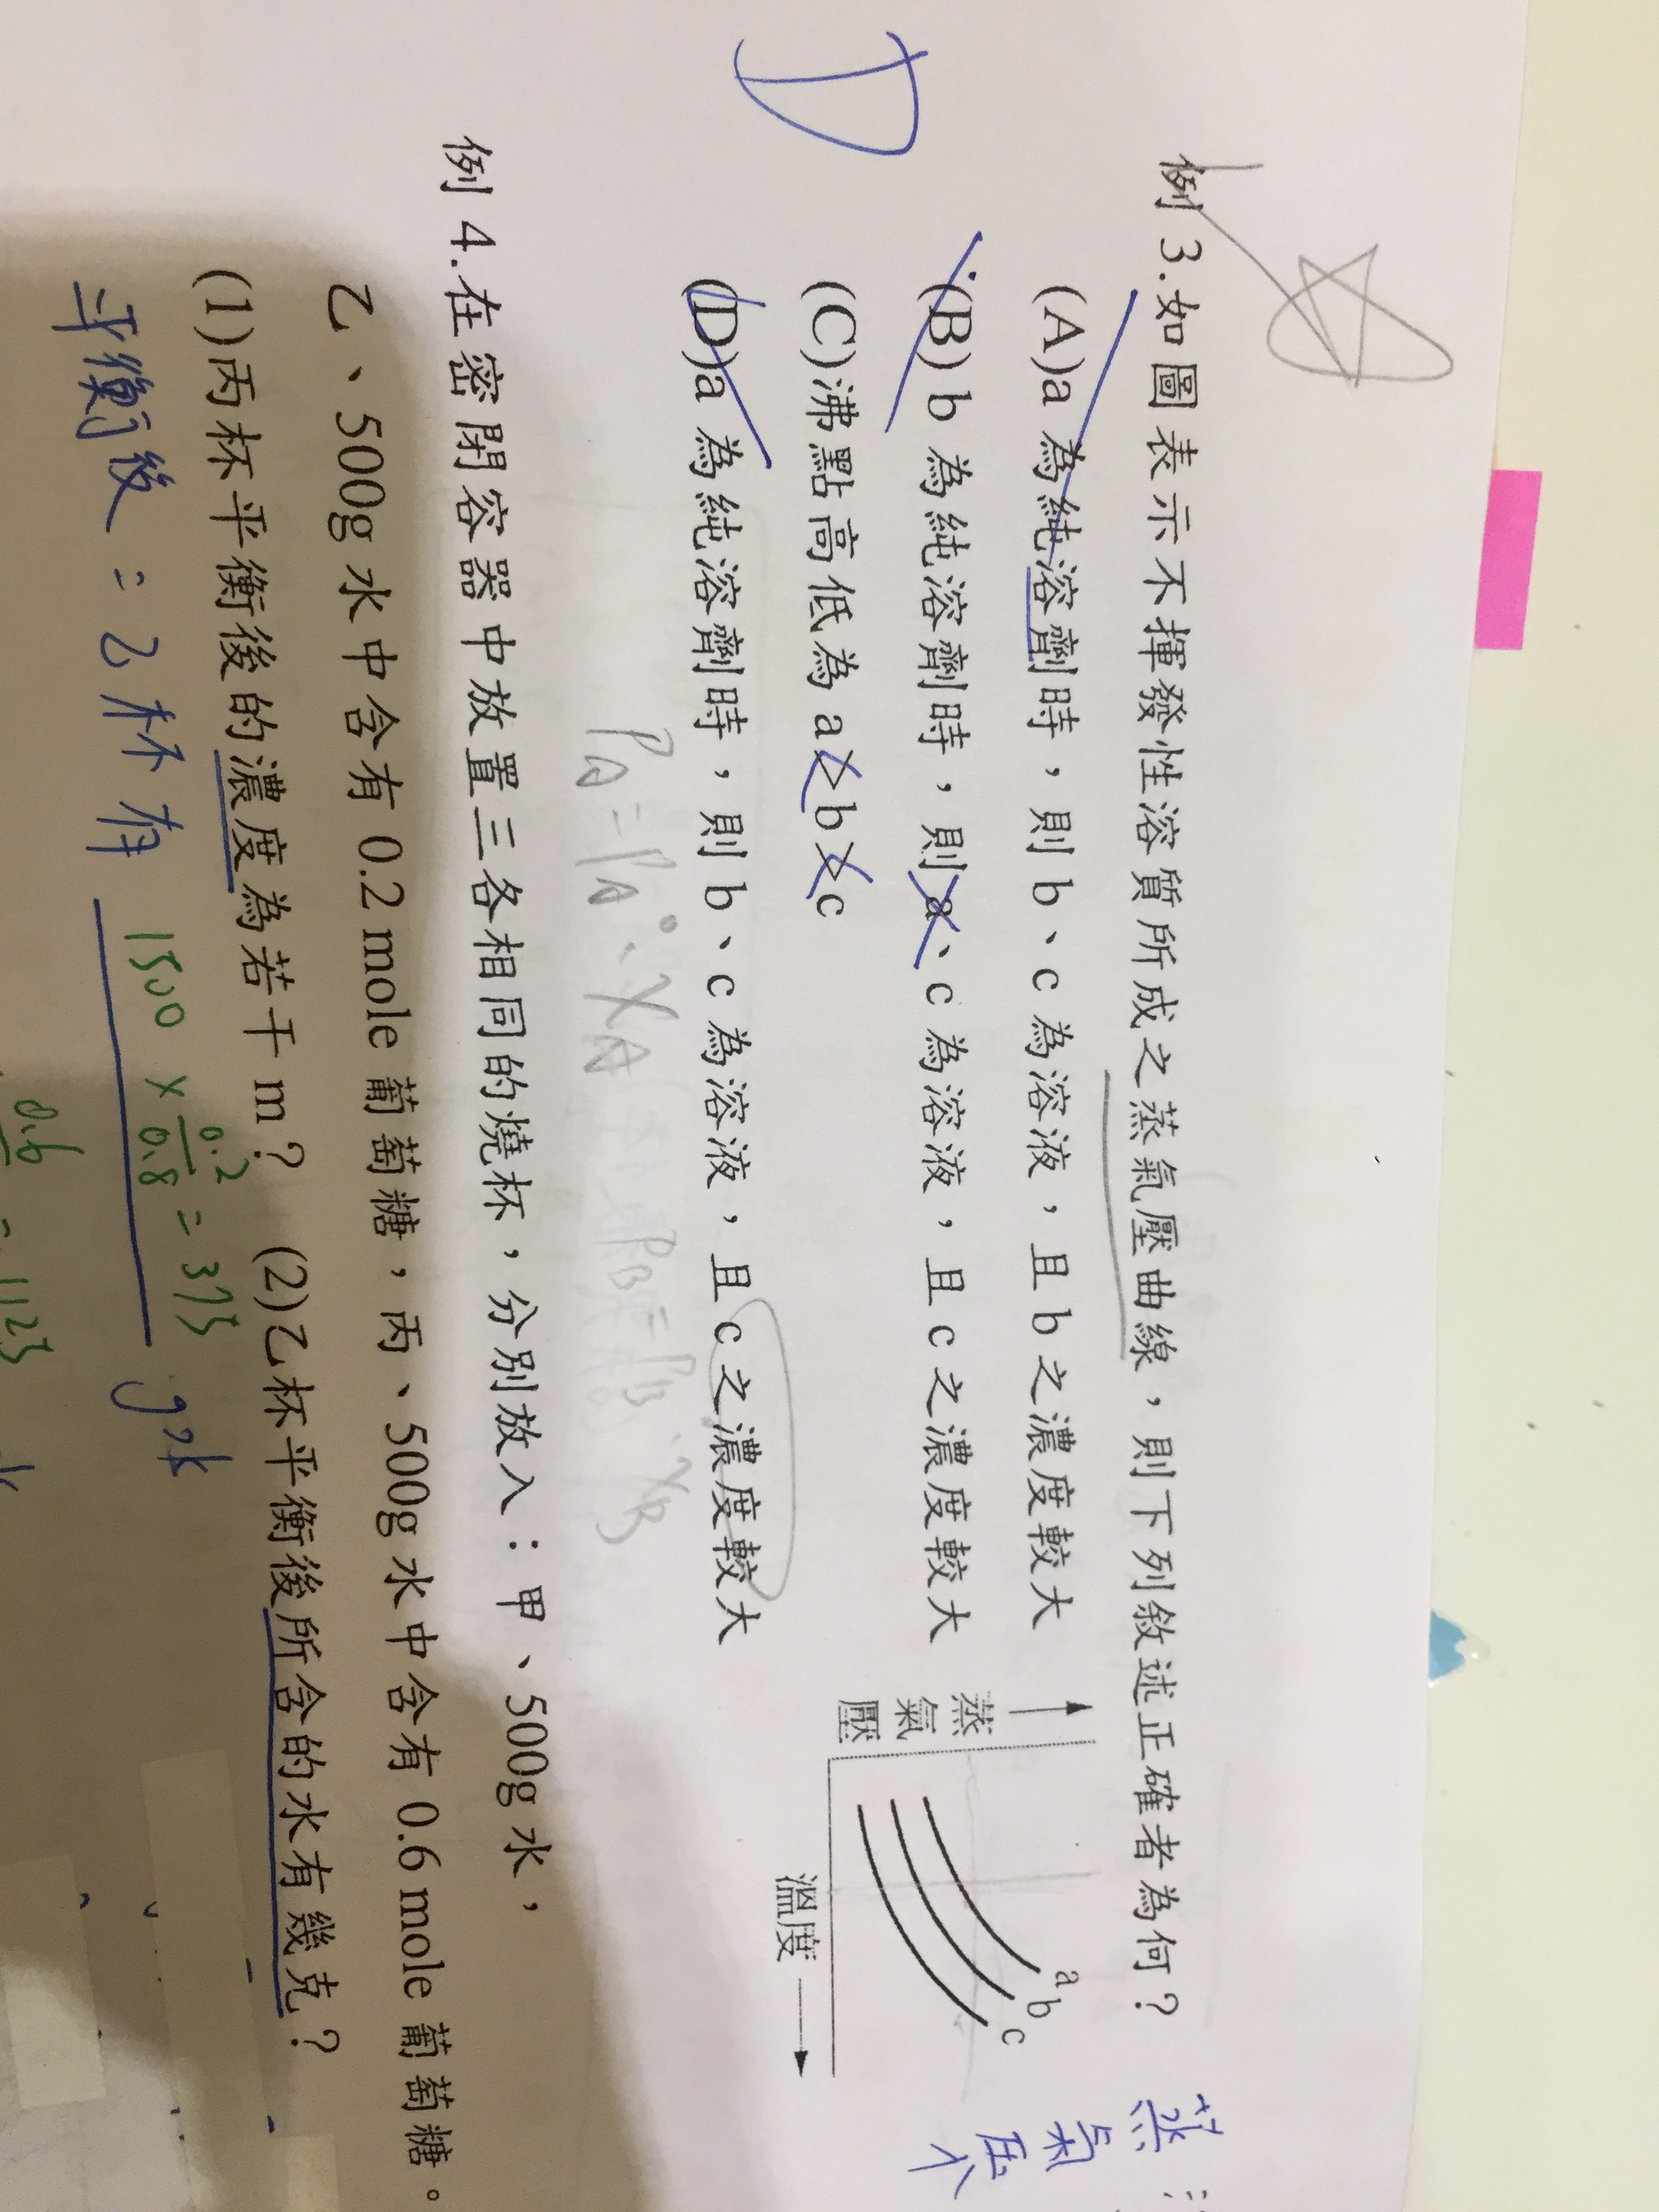 例3.如圖表示不揮發性溶質所成之蒸氣壓曲線，則下列敘述正確者為何？
(A)a 為純溶劑時，則 b、c 為溶液，且 b 之濃度較大
(B) b 為純溶劑時，則 a、c 為溶液，且 c 之濃度較大
(C)沸點高低為 a>b>c
(D)a 為純溶劑時，則 b、c 為溶液，且 c 之濃度較大
D
蒸氣壓
溫度
a
b
c
蒸
氣
压
PA=PA°·XA
PB=PB·XB
例4.在密閉容器中放置三各相同的燒杯，分別放入：甲、500g 水，
乙、500g 水中含有 0.2 mole 葡萄糖，丙、500g 水中含有 0.6 mole 葡萄糖。
(1)丙杯平衡後的濃度為若干 m？ (2)乙杯平衡後所含的水有幾克？
平衡後=乙杯有 1500×0.2/0.8=375 g水
0.6
1125